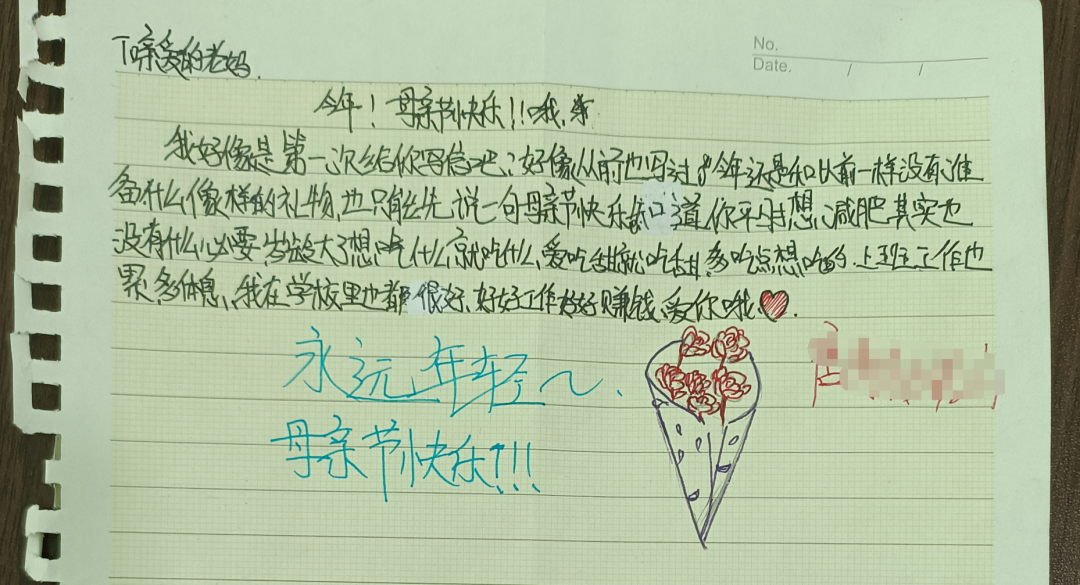 No.
Date. / /
To亲爱的老妈.
今年！母亲节快乐!!哦,亲
我好像是第一次给你写信吧？好像从前也写过 今年还是和以前一样没有准
备什么像样的礼物,也只能先说一句母亲节快乐,知道你平时想减肥其实也
没有什么必要岁龄大了想吃什么就吃什么,爱吃甜就吃甜,多吃点想吃的.上班工作也
累,多休息,我在学校里也都很好,好好工作好好赚钱,爱你哦.
永远年轻～.
母亲节快乐!!!